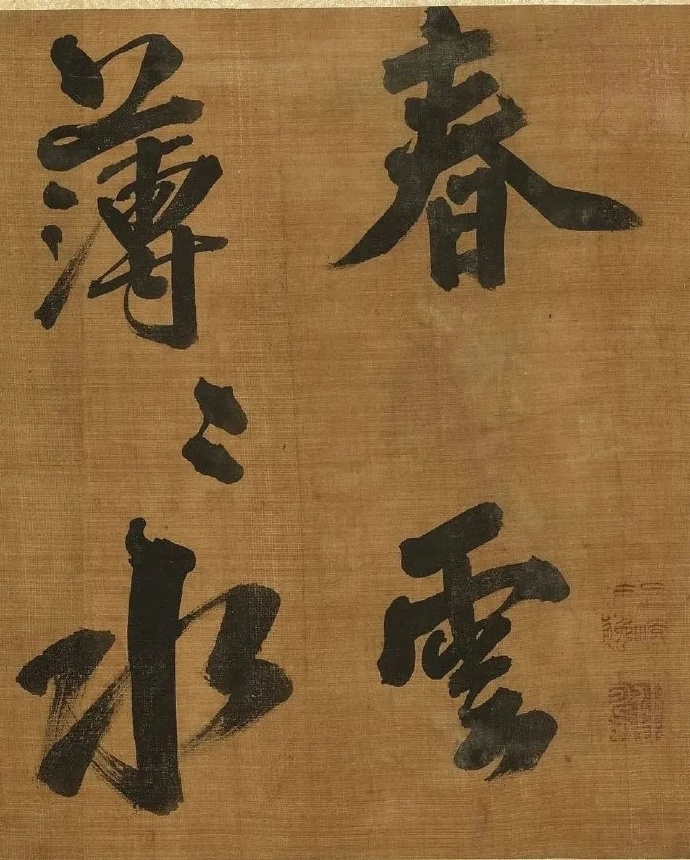 春雲
薄〻水